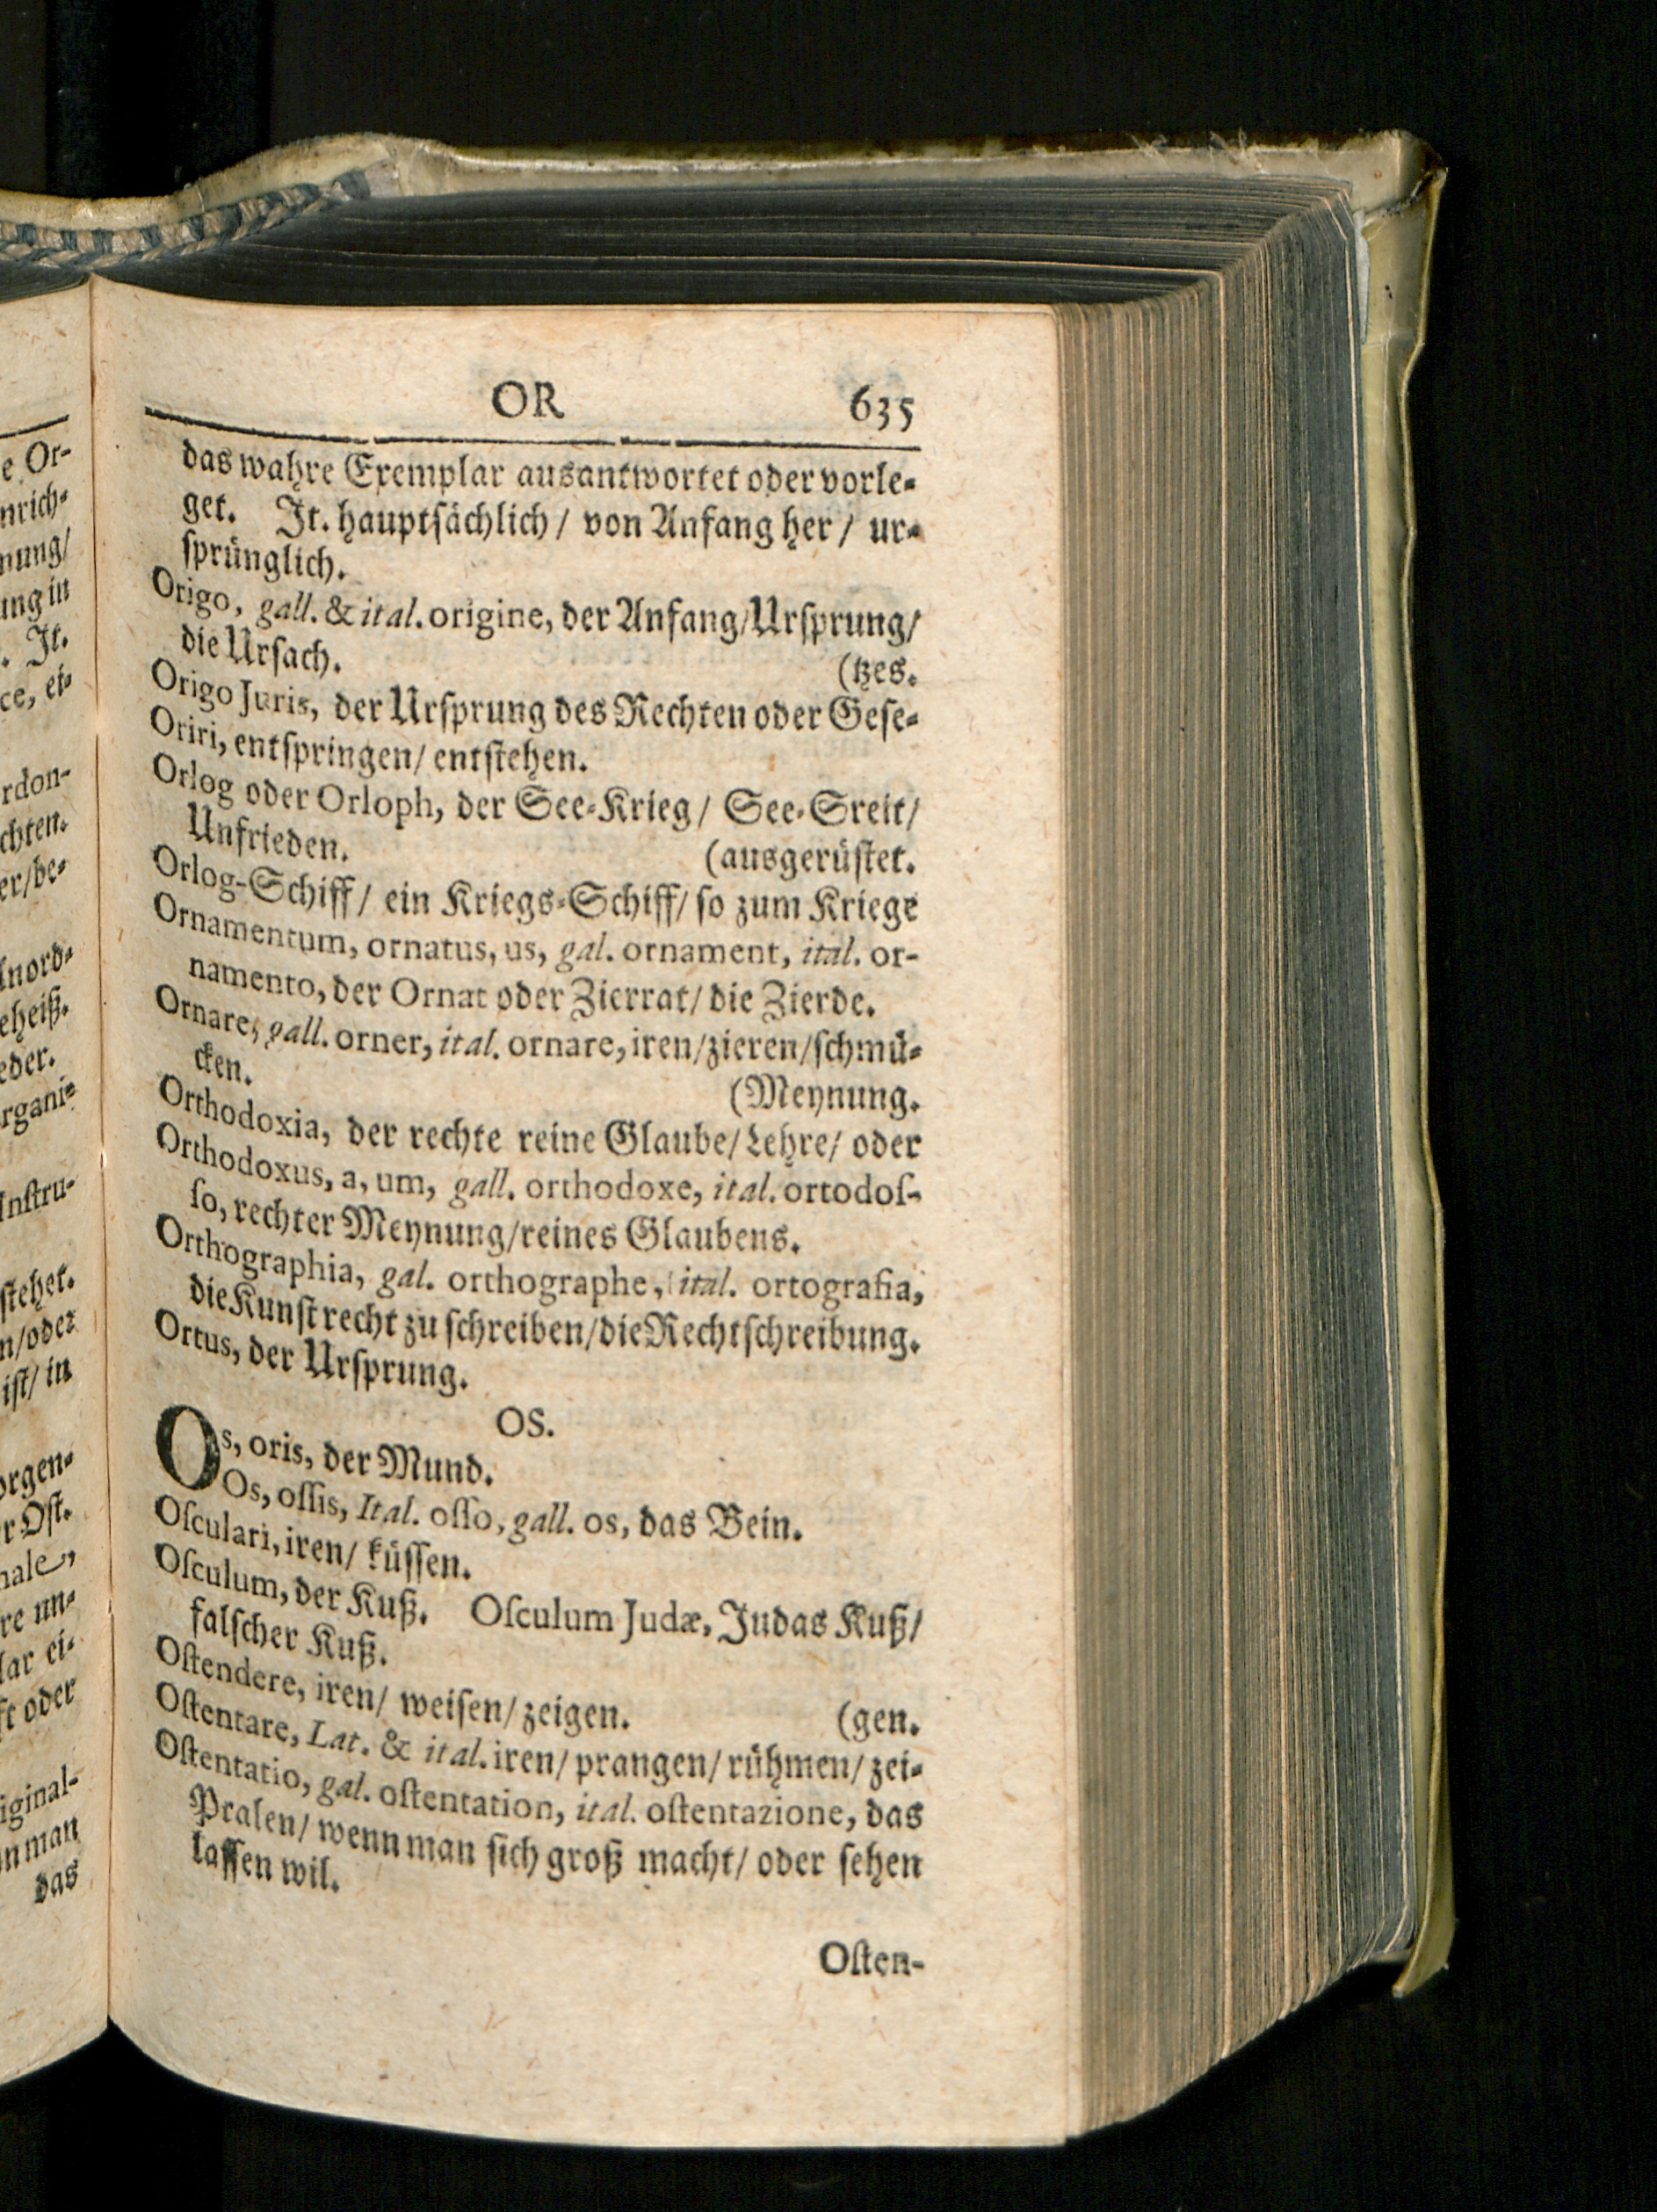 e Or-
nrich-
nung/
ung in
. It.
ce, ei-
rdon-
chten.
er/be-
nord-
eheiß.
eder.
rgani-
Inſtru-
ſtehet.
n/oder
iſt/ in
orgen-
r Oſt.
nale,
re un-
lar ei-
ft oder
iginal-
n man
das
OR 635
das wahre Exemplar ausantwortet oder vorle-
get. It. hauptſächlich/ von Anfang her/ ur-
ſprünglich.
Origo, gall. & ital. origine, der Anfang/Urſprung/
die Urſach. (tzes.
Origo Juris, der Urſprung des Rechten oder Geſe-
Oriri, entſpringen/ entſtehen.
Orlog oder Orloph, der See-Krieg/ See-Sreit/
Unfrieden. (ausgerüſtet.
Orlog-Schiff/ ein Kriegs-Schiff/ ſo zum Kriege
Ornamentum, ornatus, us, gal. ornament, ital. or-
namento, der Ornat oder Zierrat/ die Zierde.
Ornare, gall. orner, ital. ornare, iren/zieren/ſchmü-
cken. (Meynung.
Orthodoxia, der rechte reine Glaube/Lehre/ oder
Orthodoxus, a, um, gall. orthodoxe, ital. ortodoſ-
ſo, rechter Meynung/reines Glaubens.
Orthographia, gal. orthographe, ital. ortografia,
die Kunſt recht zu ſchreiben/die Rechtſchreibung.
Ortus, der Urſprung.
OS.
Os, oris, der Mund.
Os, oſſis, Ital. oſſo, gall. os, das Bein.
Oſculari, iren/ küſſen.
Oſculum, der Kuß. Oſculum Judæ, Judas Kuß/
falſcher Kuß.
Oſtendere, iren/ weiſen/ zeigen. (gen.
Oſtentare, Lat. & ital. iren/ prangen/ rühmen/ zei-
Oſtentatio, gal. oſtentation, ital. oſtentazione, das
Pralen/ wenn man ſich groß macht/ oder ſehen
laſſen wil.
Oſten-